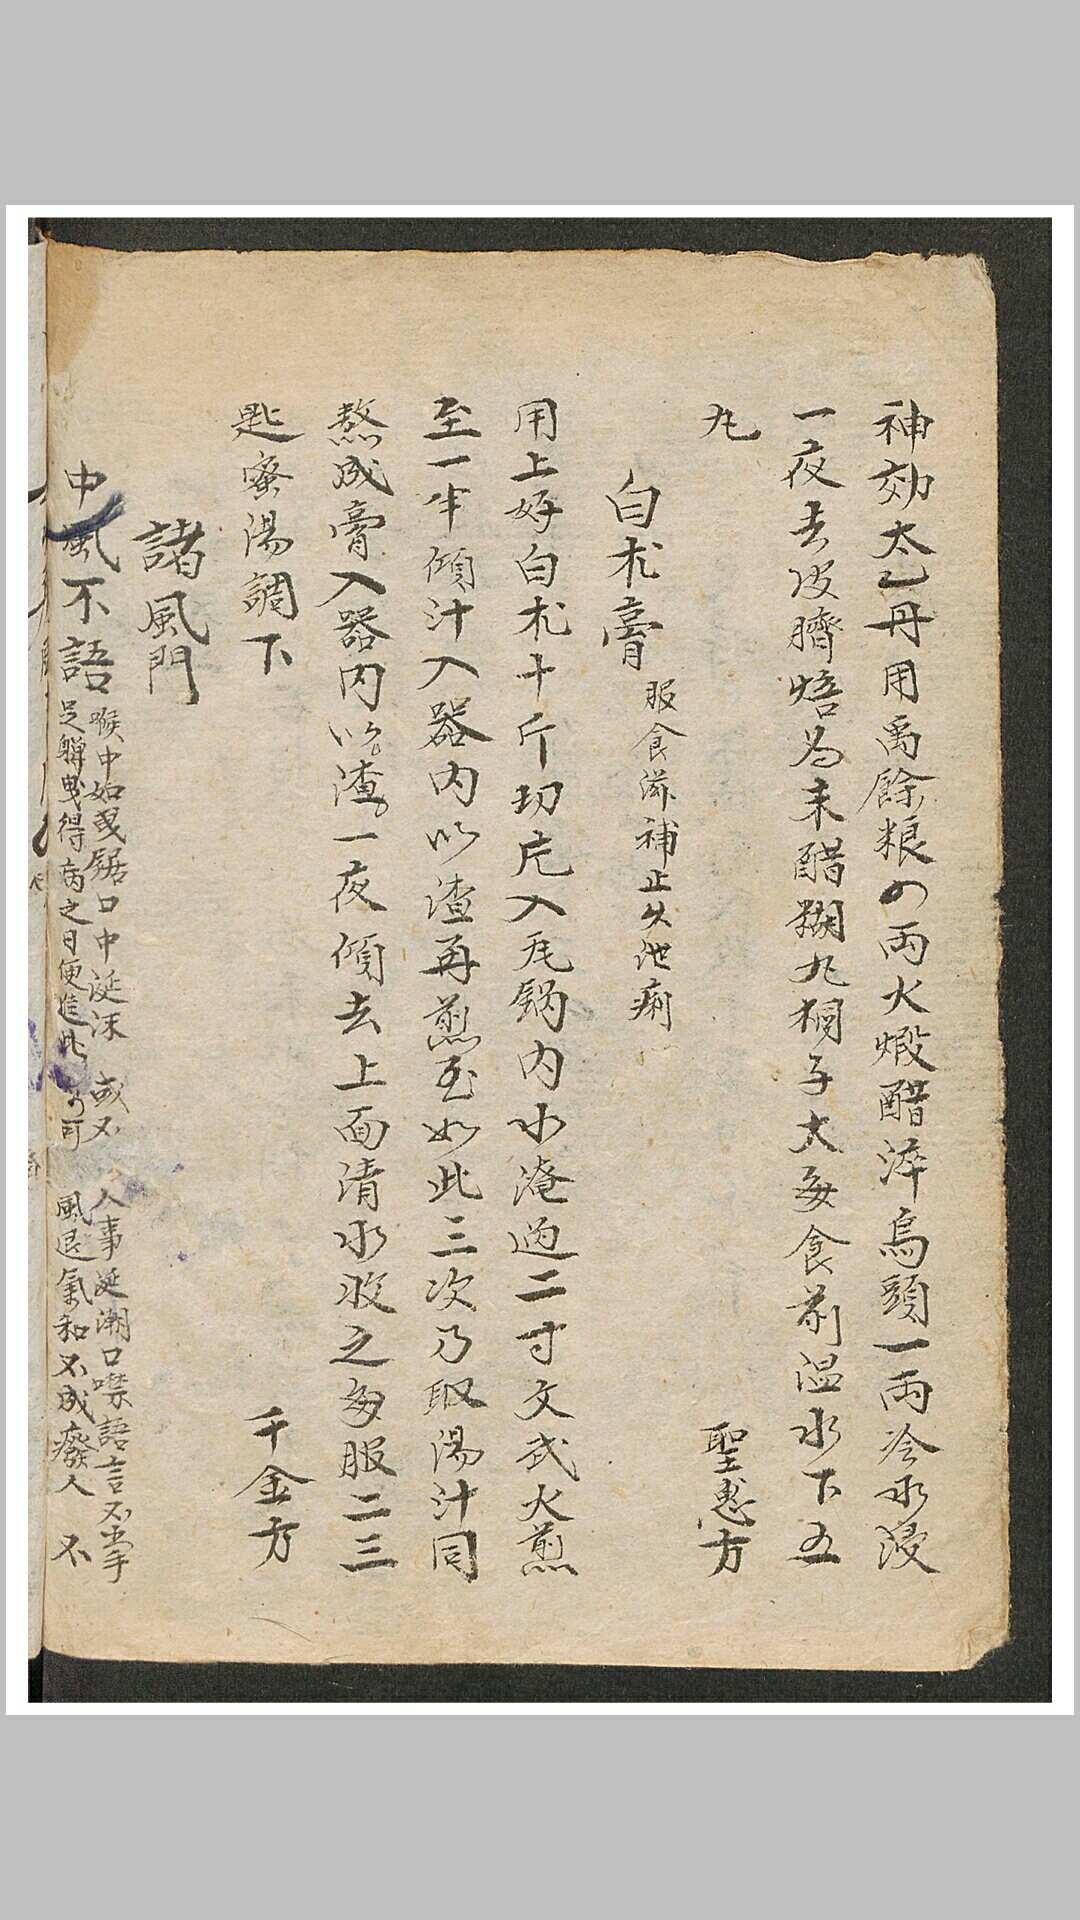 神効太乙丹用禹餘粮四両火煅醋淬烏頭一両冷水浸
一夜去皮臍焙為末醋糊丸梧子大每食前温水下五
丸
聖惠方
白朮膏
服食滋補止久泄痢
用上好白朮十斤切片入瓦鍋内水淹過二寸文武火煎
至一半傾汁入器内以渣再煎至如此三次乃取湯汁同
熬成膏入器内以渣一夜傾去上面清水收之每服二三
匙蜜湯調下
千金方
諸風門
中風不語
喉中如曳鋸口中涎沫 或不 人事涎潮口噤語言不 手
足軃曳得病之日便進此 可 風退氣和不成癈人 不